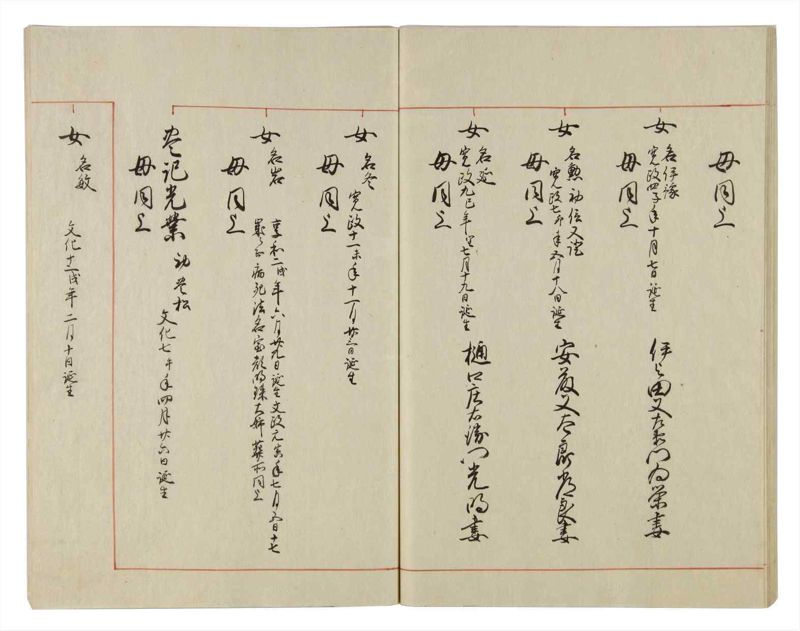 母同上
女
名伊豫
寛政四子年十月七日誕生
伊与田又左衛門為栄妻
母同上
女
名勲 幼
寛政七卯年五月十八日誕生
安藤又太郎 妻
母同上
女
名延
寛政九巳年 七月十九日誕生
樋口庄右衛門光明妻
母同上
女
名冬
寛政十一未年十一月廿三日誕生
母同上
女
名岩
享和二戌年六月廿九日誕生文政元 年七月五日十七
歳ニ而病死法名 大姉葬所同上
母同上
記光業
幼 松
文化七午年四月廿六日誕生
母同上
女
名敏
文化十一戌年二月十日誕生